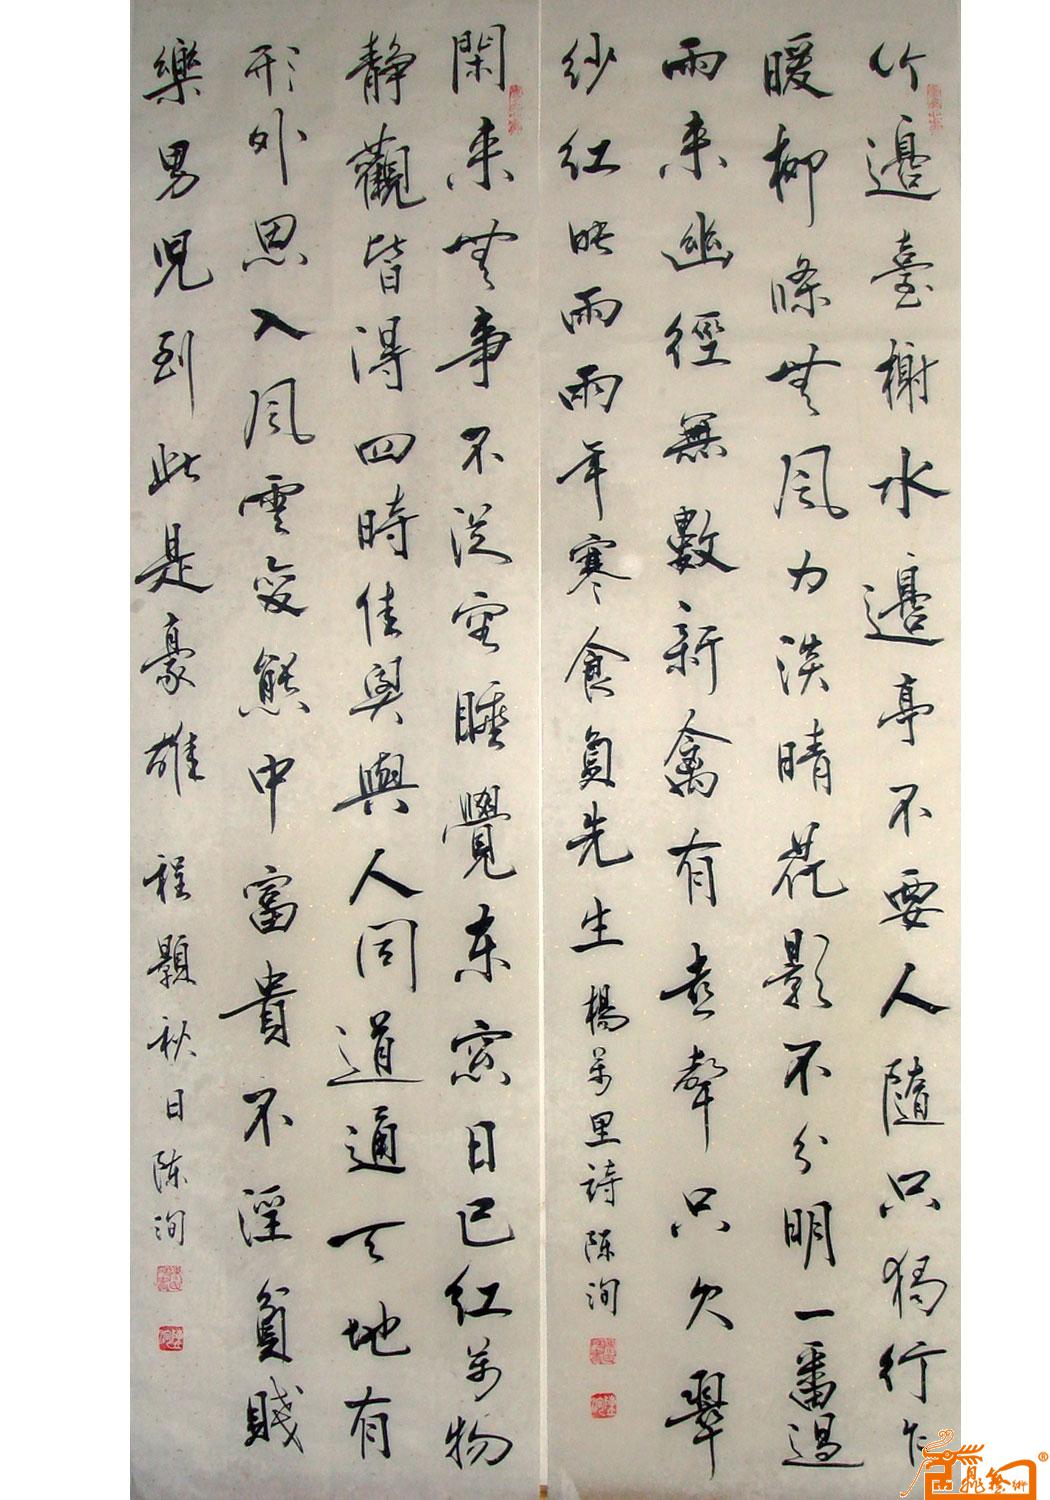 竹邊臺榭水邊亭不要人隨只獨行乍
暖柳條無風力淡晴花影不分明一番過
雨來幽徑無數新禽有喜聲只欠翠
紗紅映雨兩年寒食負先生 楊萬里詩陳洵
閑來無事不從容睡覺東窗日已紅萬物
靜觀皆得四時佳興與人同道通天地有
形外思入風雲變態中富貴不淫貧賤
樂男兒到此是豪雄 程顥秋日陳洵